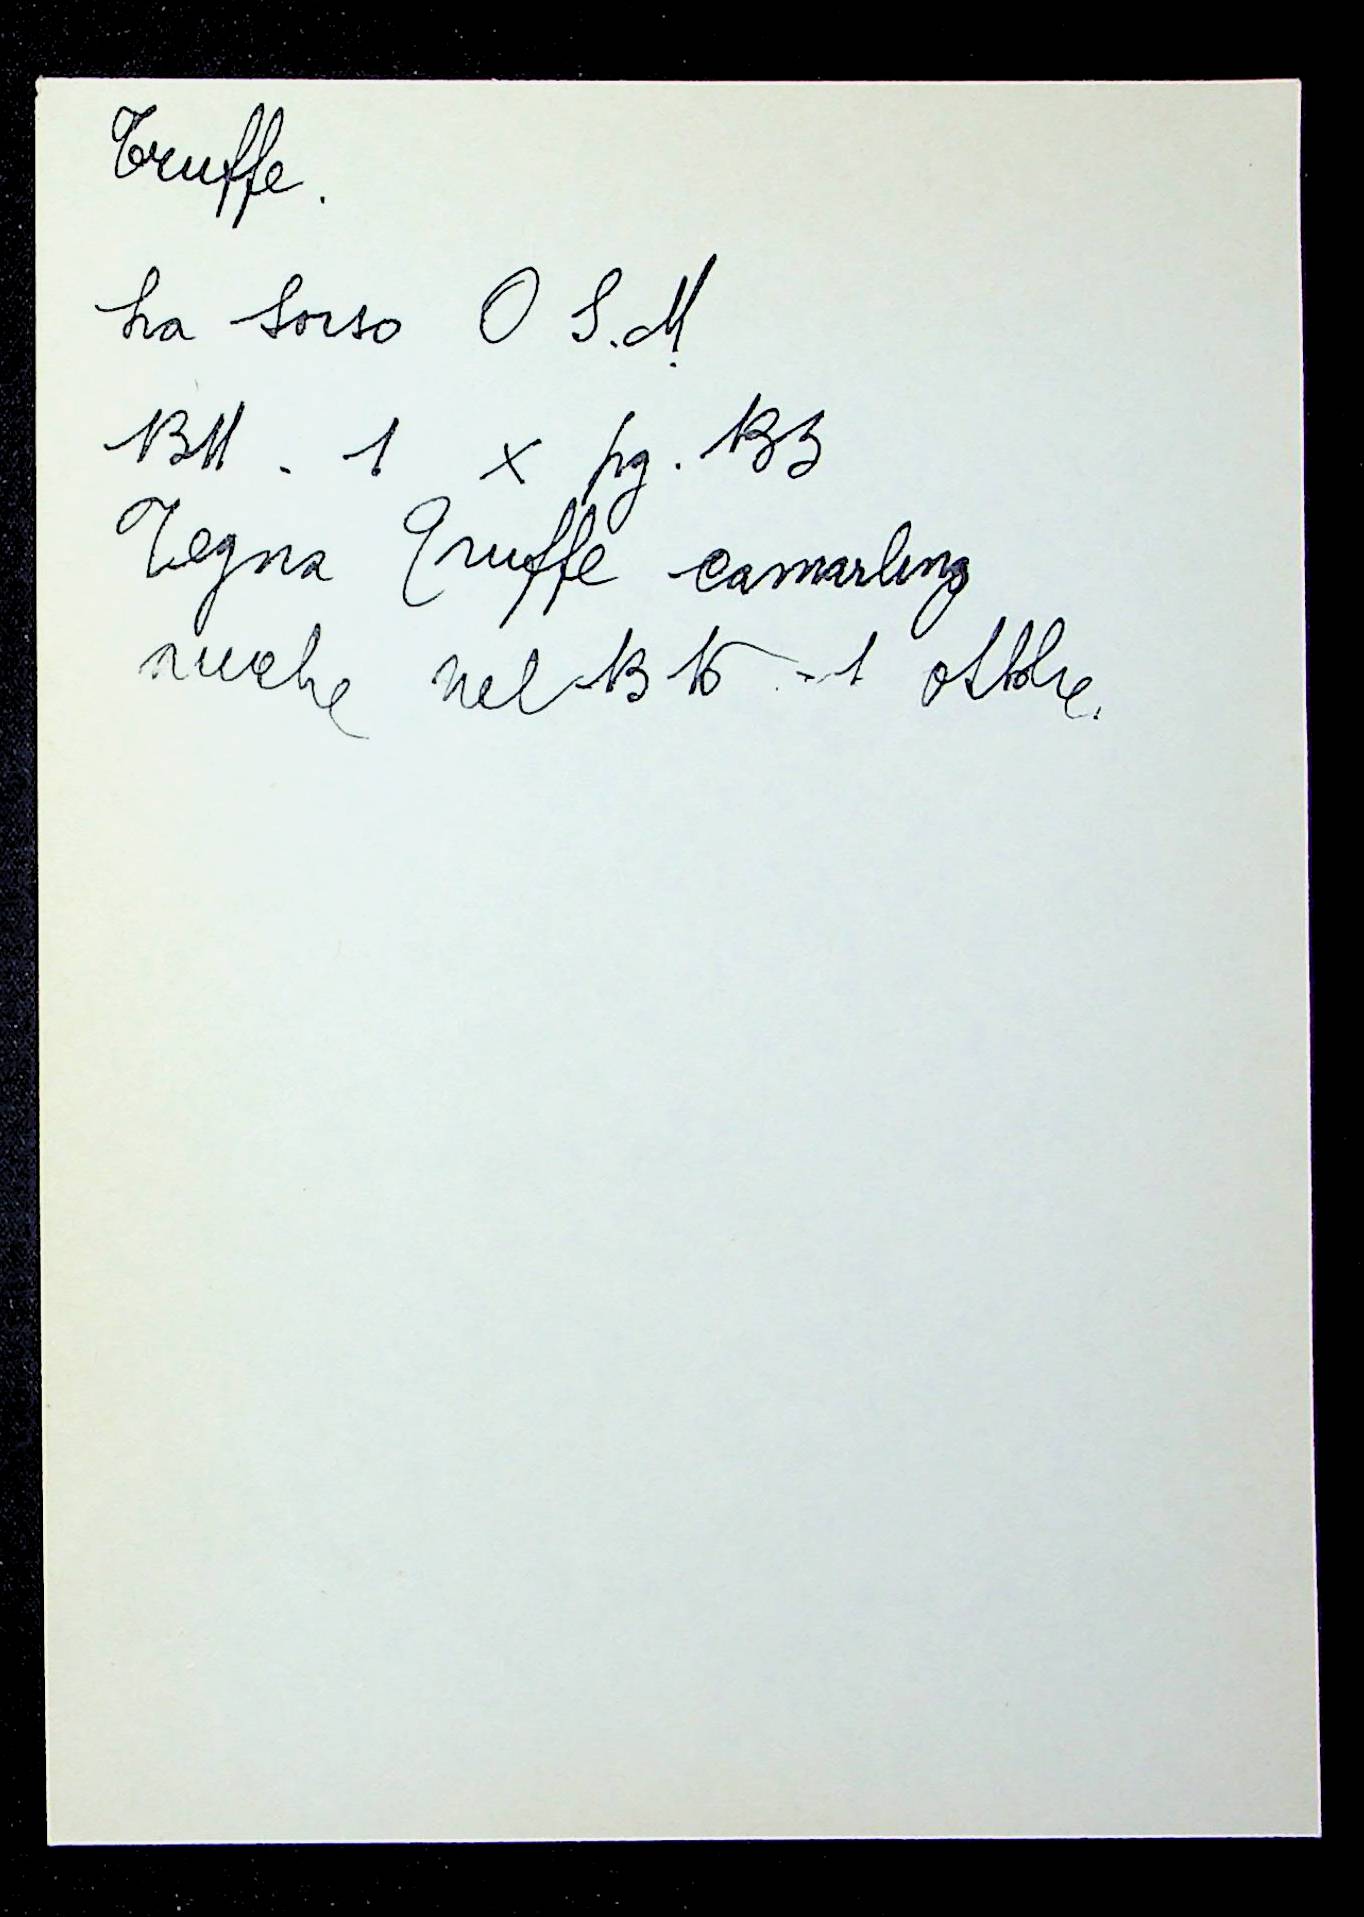 Truffe.
ha Sorso O S.M.
1311 - 1 X pg. 133
Tegna Truffe camarleng
anche nel 1315 - 1 ottbre.